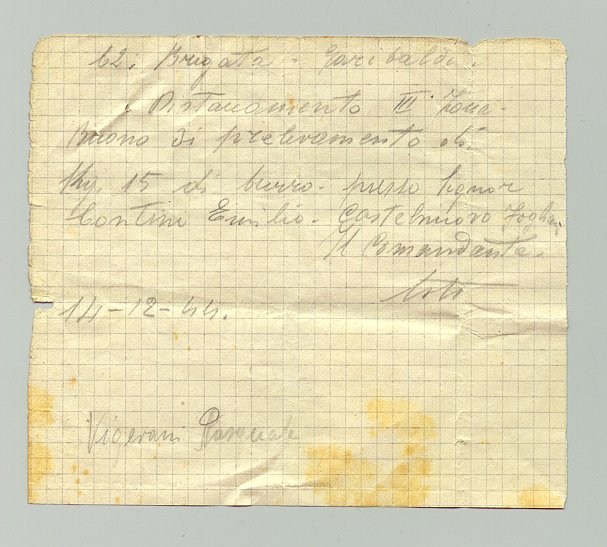 62ª Brigata - Garibaldi.
Distaccamento III Zona.
Buono di prelevamento di
Kg. 15 di burro. presso Signor
Contini Emilio. Castelnuovo Foglia.
Il Comandante.
14-12-44.
Vigevani Pasquale